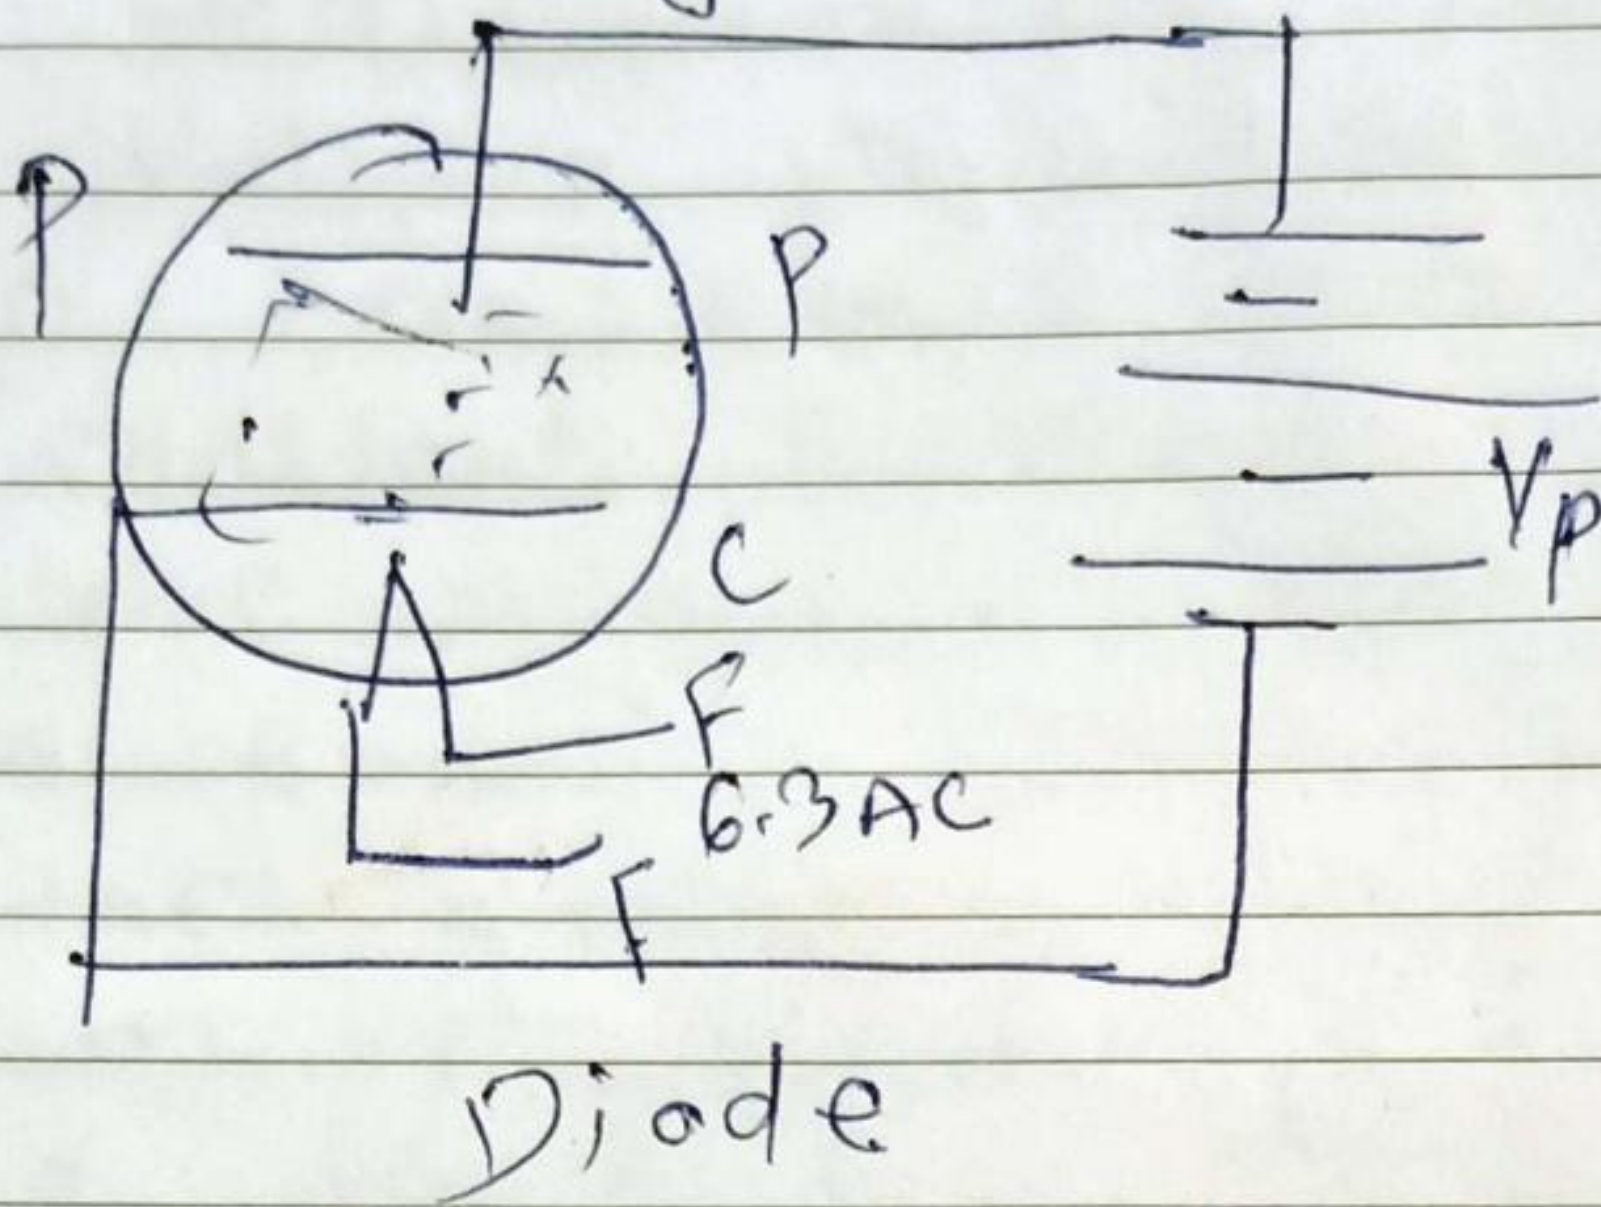 P
P
Vp
C
F
6.3AC
F
Diode